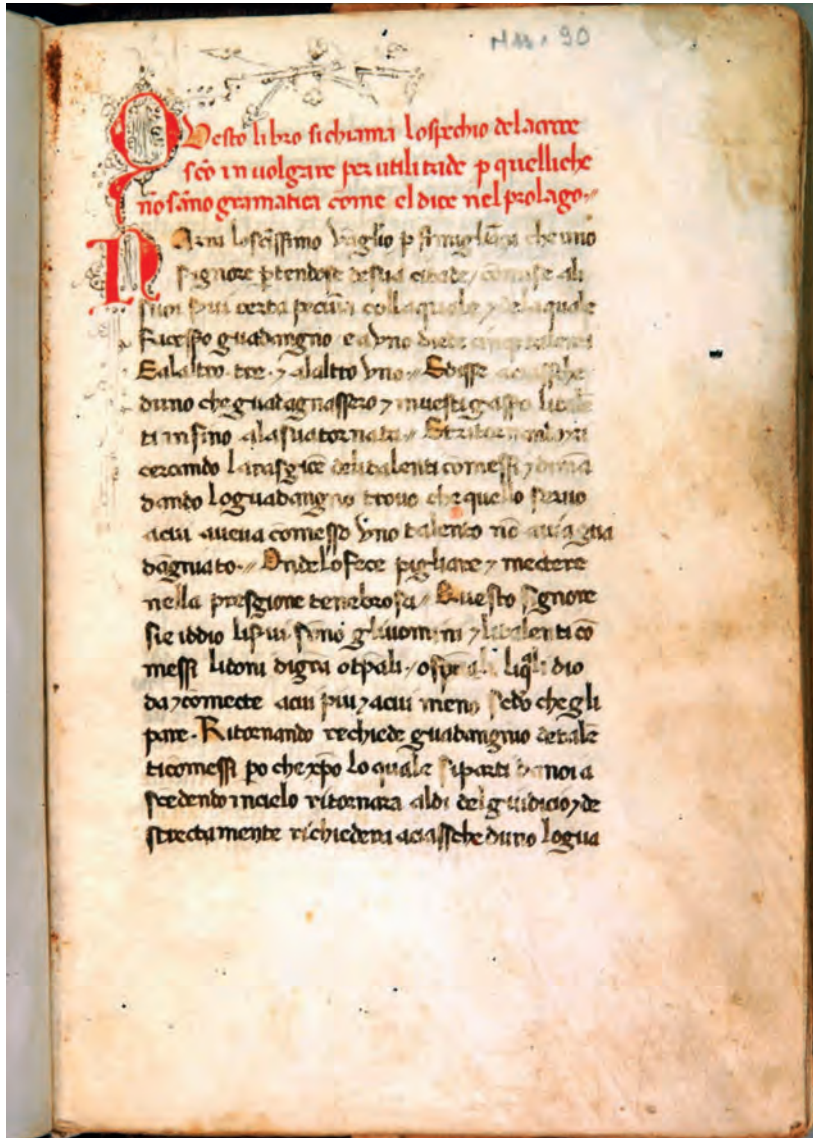 Mss. 90
Questo libro sichiama lospechio delacroce
sco in uolgare per utilitade p quelliche
nō sāno gramatica come el dice nel prolago.
Narra losc̄issimo vāglio p simigliāza che uno
signore ptendose desua citade, comise ali
suoi s̄ui certa pecūia collaquale ⁊ delaquale
facesso guadangno e a vno diede cinque talenti
Ealaltro tre ⁊ alaltro vno Edisse aciasche
duno che guatagnassero ⁊ inuestigasso litalē
ti insino alasua tornata
cercando larasgiōe delitalenti cōmessi ⁊ dimā
dando loguadangno trouo che quello seruo
acui aueua cōmesso vno talento nō auia gua
dāgniato. Onde lofece pigliare ⁊ mectere
nella presgione tenebrosa Questo signore
sie iddio lis̄ui sōno gliuomini ⁊ litalenti cō
messi lidoni digra otp̄ali, osp̄ali liq̄li dio
da ⁊ cōmecte acui piu ⁊ acui meno sedo che gli
pare. Ritornando rechiede guadangnio detalē
ticomessi po che xp̄o lo quale siparti danoi a
scedendo incielo ritornara aldi delguidicio ⁊ de
strectamente richiedera aciasscheduno logua